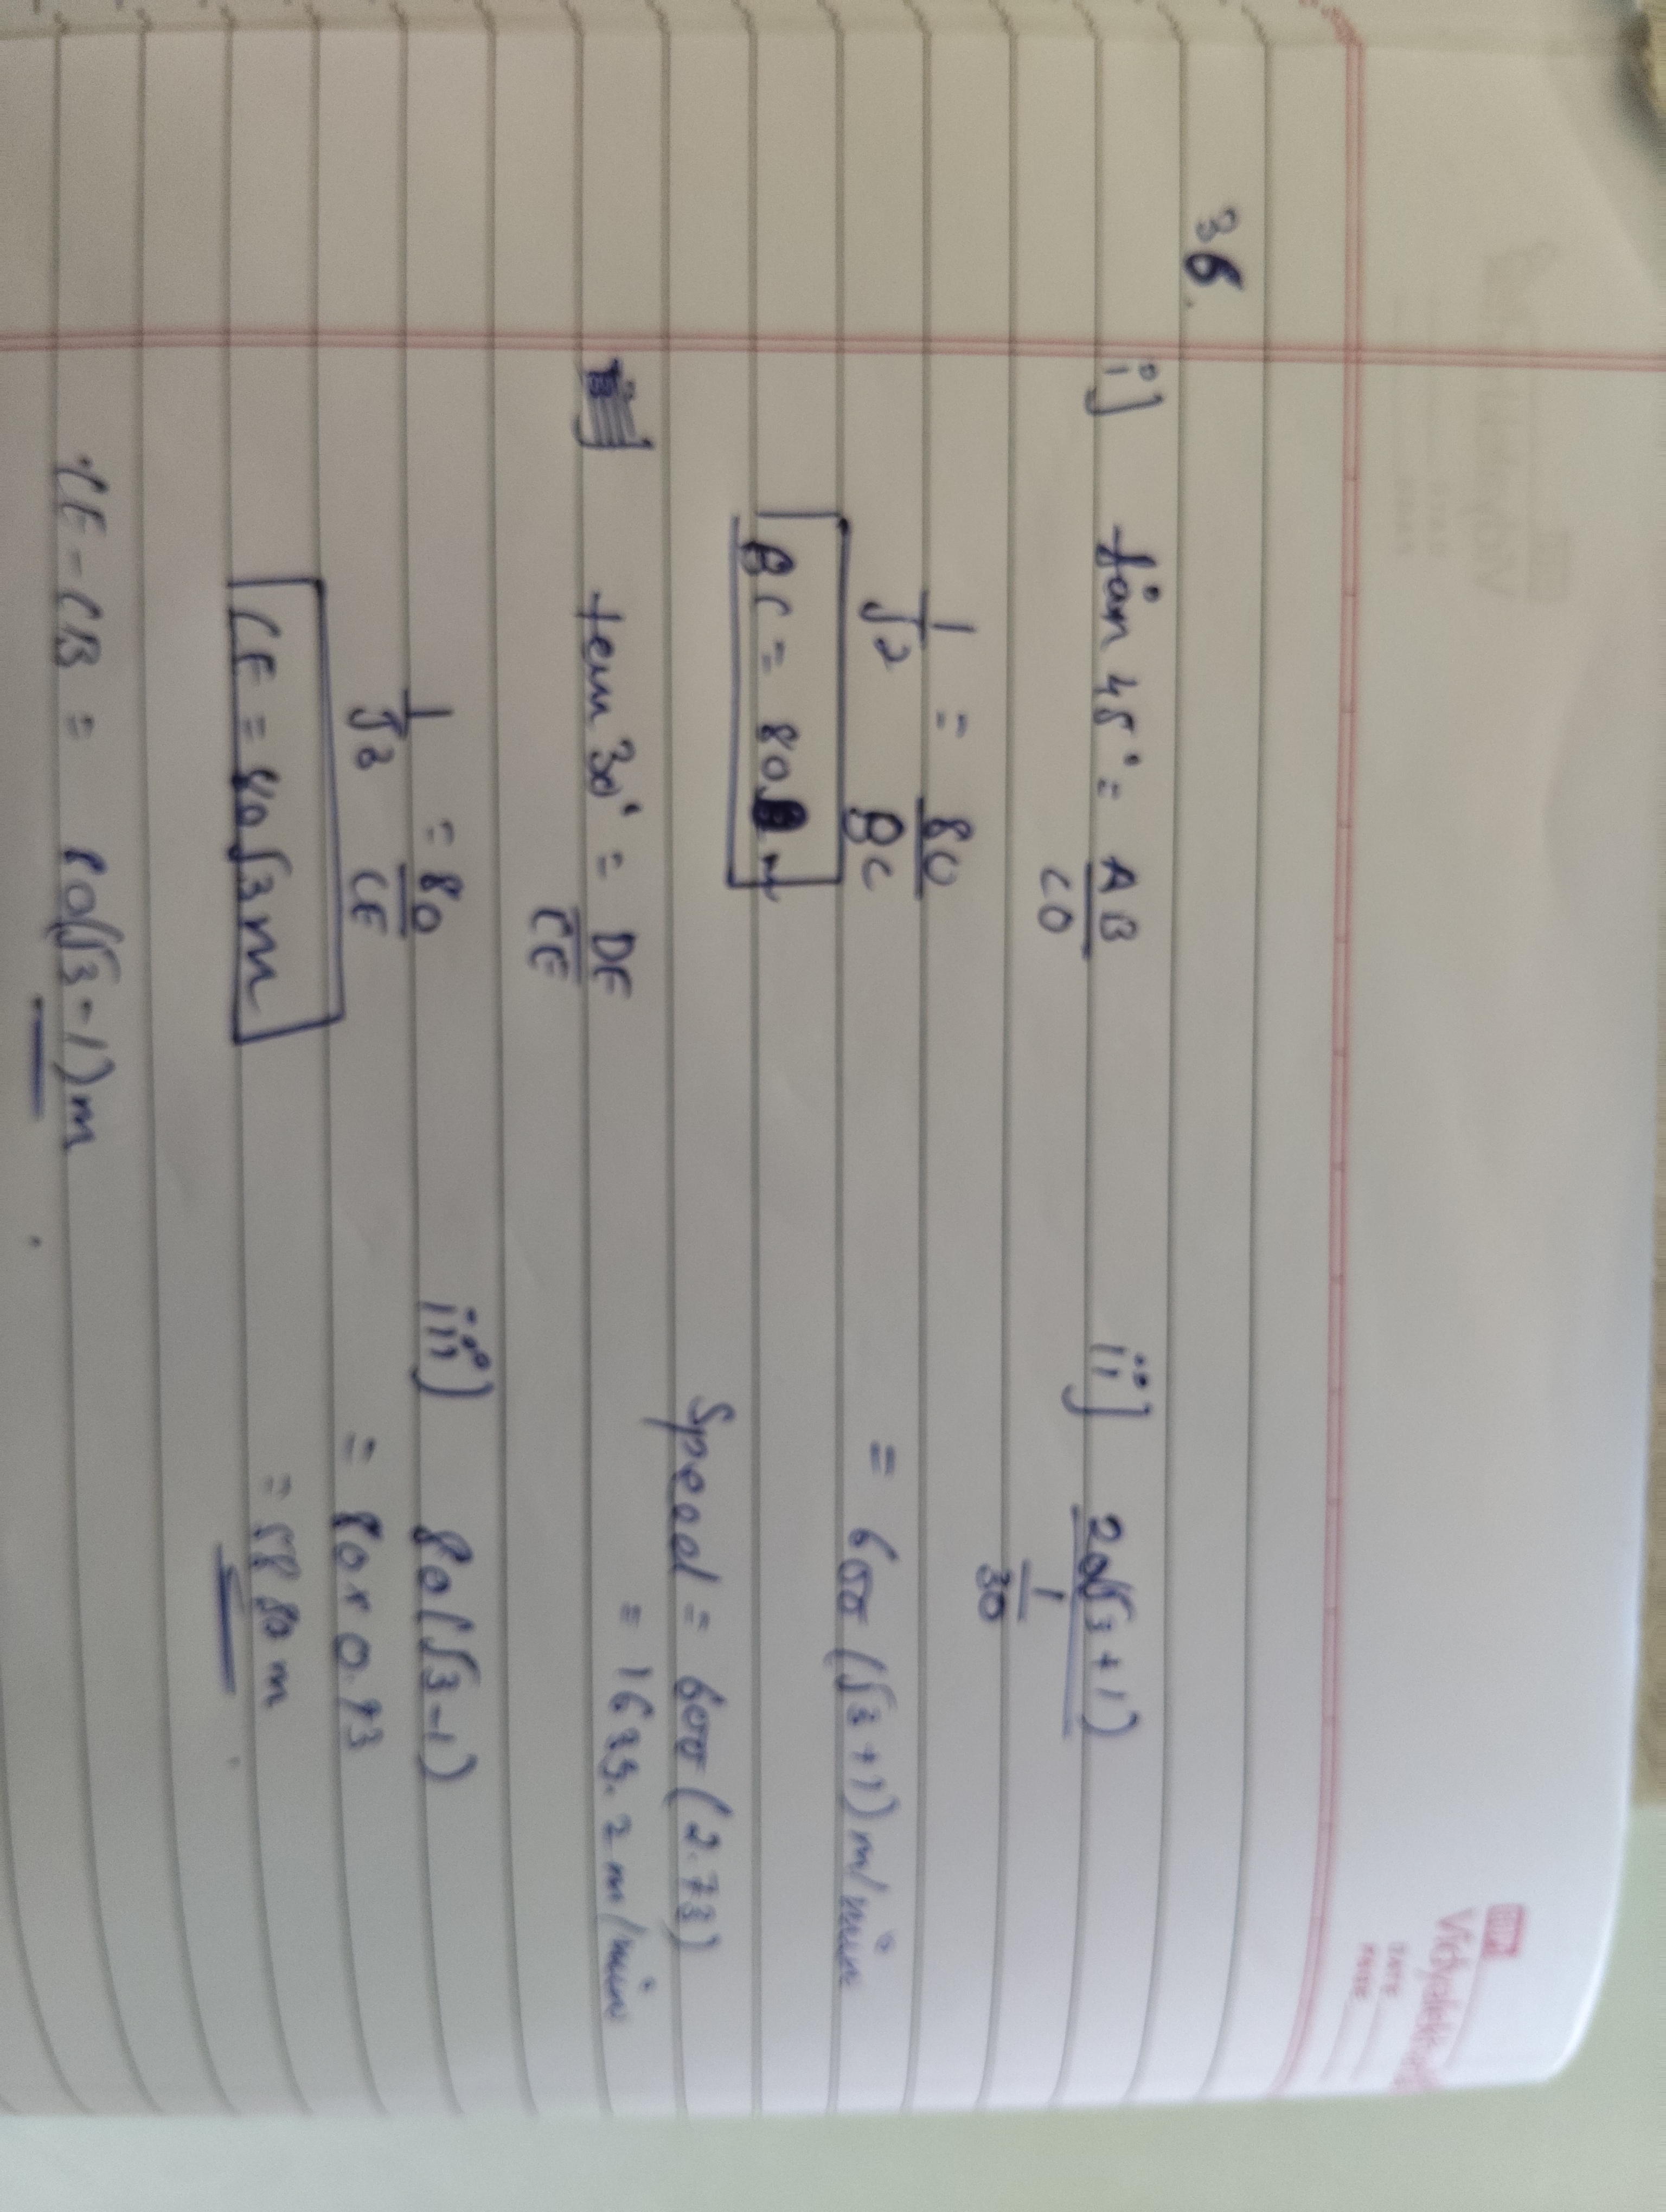 36.
i] tan 45° = AB/CD
1/√2 = 80/BC
BC = 80 m
tan 30° = DE/CE
1/√3 = 80/CE
CE = 80√3 m
CE - CB = 80(√3-1)m
ii] 20(√3+1)
1/30
= 600 (√3+1) m/min
Speed = 600 (2.73)
= 1639.2 m/min
iii] 80(√3-1)
= 80 × 0.73
= 58
Vidyalekhan
DATE
PAGE